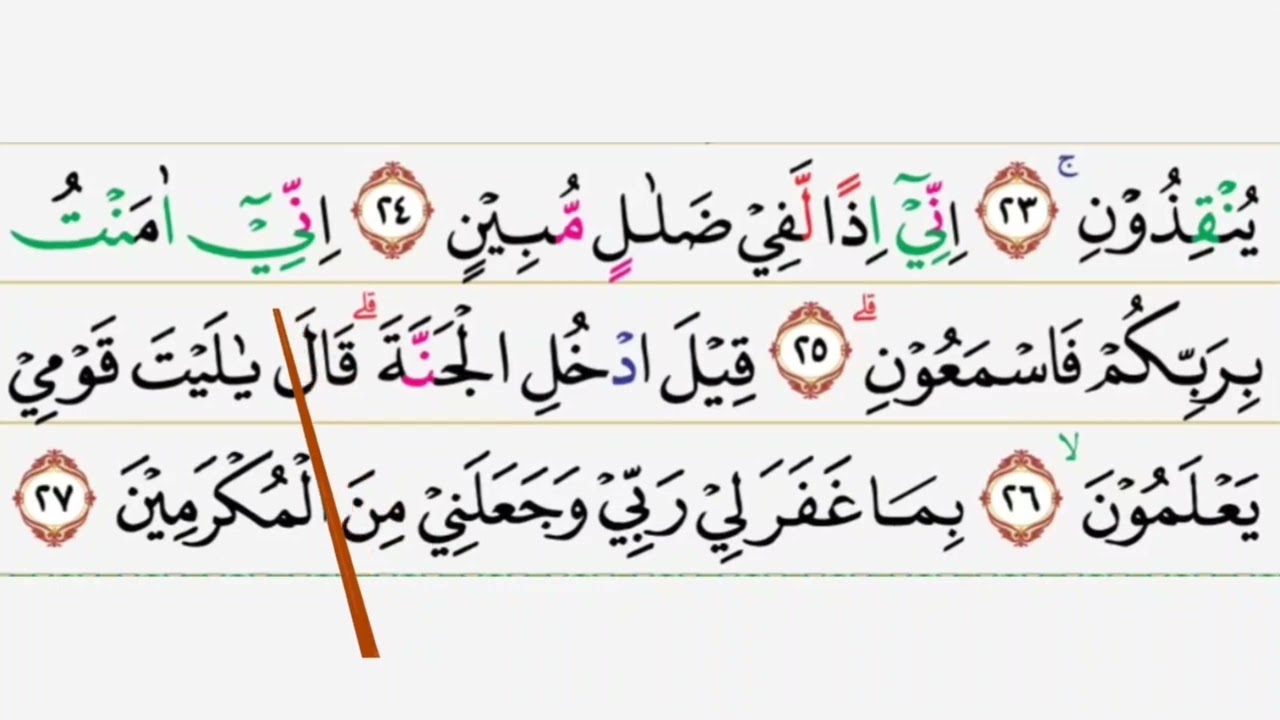 يُنْقِذُوْنِ ۚ ﴿٢٣﴾ اِنِّيْٓ اِذًا لَّفِيْ ضَلٰلٍ مُّبِيْنٍ ﴿٢٤﴾ اِنِّيْٓ اٰمَنْتُ
بِرَبِّكُمْ فَاسْمَعُوْنِ ۗ ﴿٢٥﴾ قِيْلَ ادْخُلِ الْجَنَّةَ ۗ قَالَ يٰلَيْتَ قَوْمِيْ
يَعْلَمُوْنَ ۙ ﴿٢٦﴾ بِمَا غَفَرَ لِيْ رَبِّيْ وَجَعَلَنِيْ مِنَ الْمُكْرَمِيْنَ ﴿٢٧﴾